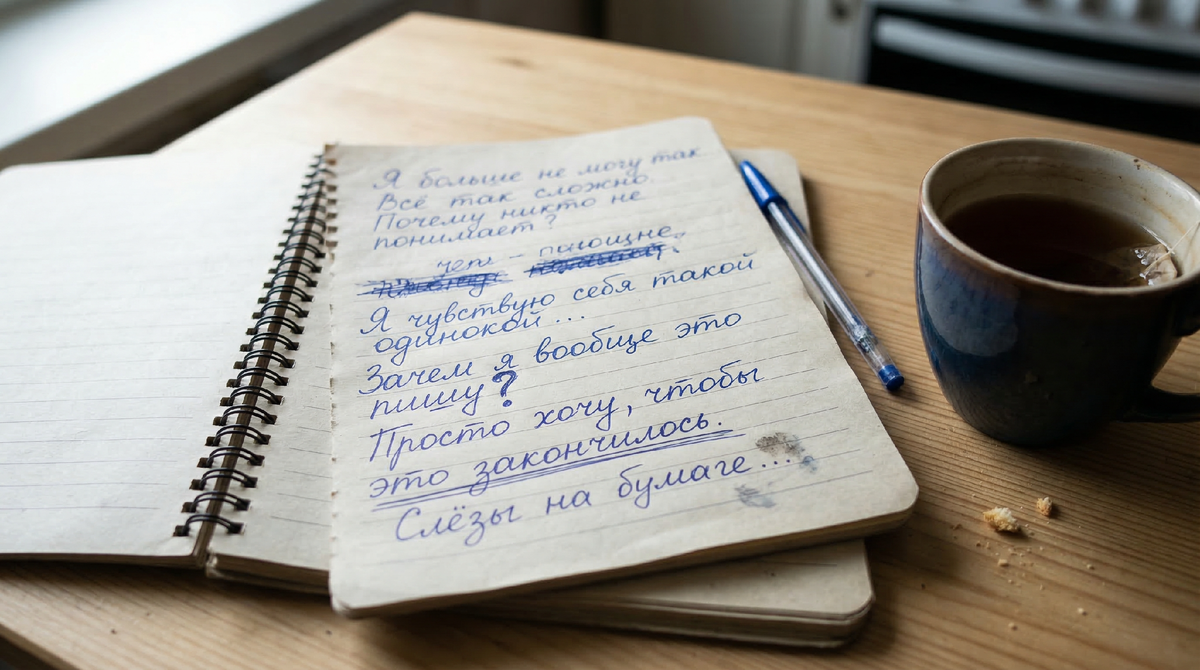 Я больше не могу так.
Всё так сложно.
Почему никто не
понимает?
Я чувствую себя такой
одинокой...
Зачем я вообще это
пишу?
Просто хочу, чтобы
это закончилось.
Слёзы на бумаге...